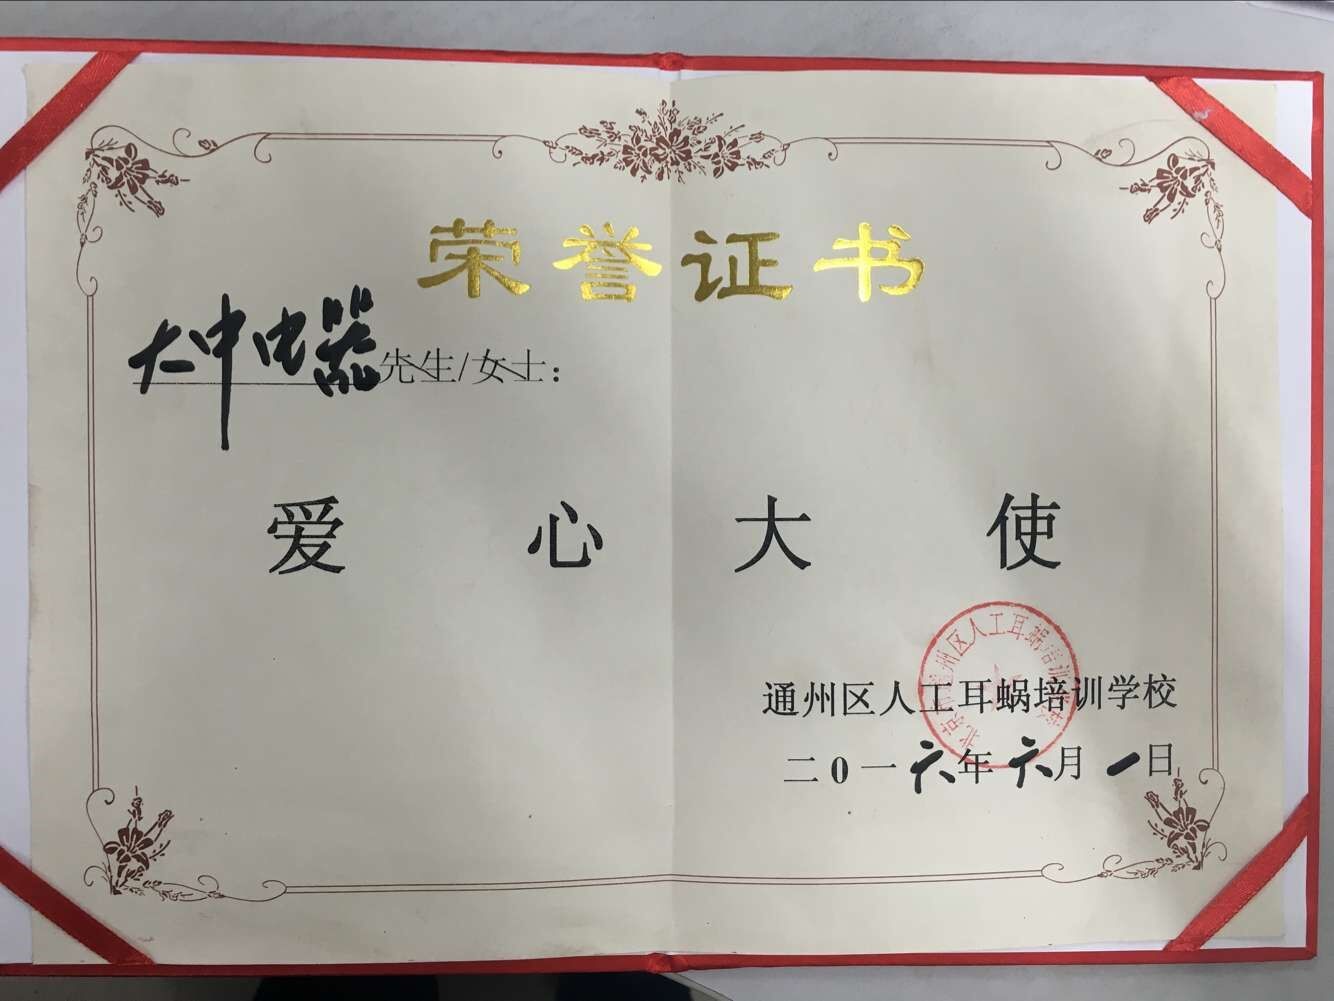 荣誉证书
大中电器先生/女士：
爱心大使
通州区人工耳蜗培训学校
二0一六年六月一日
北京市通州区人工耳蜗培训学校